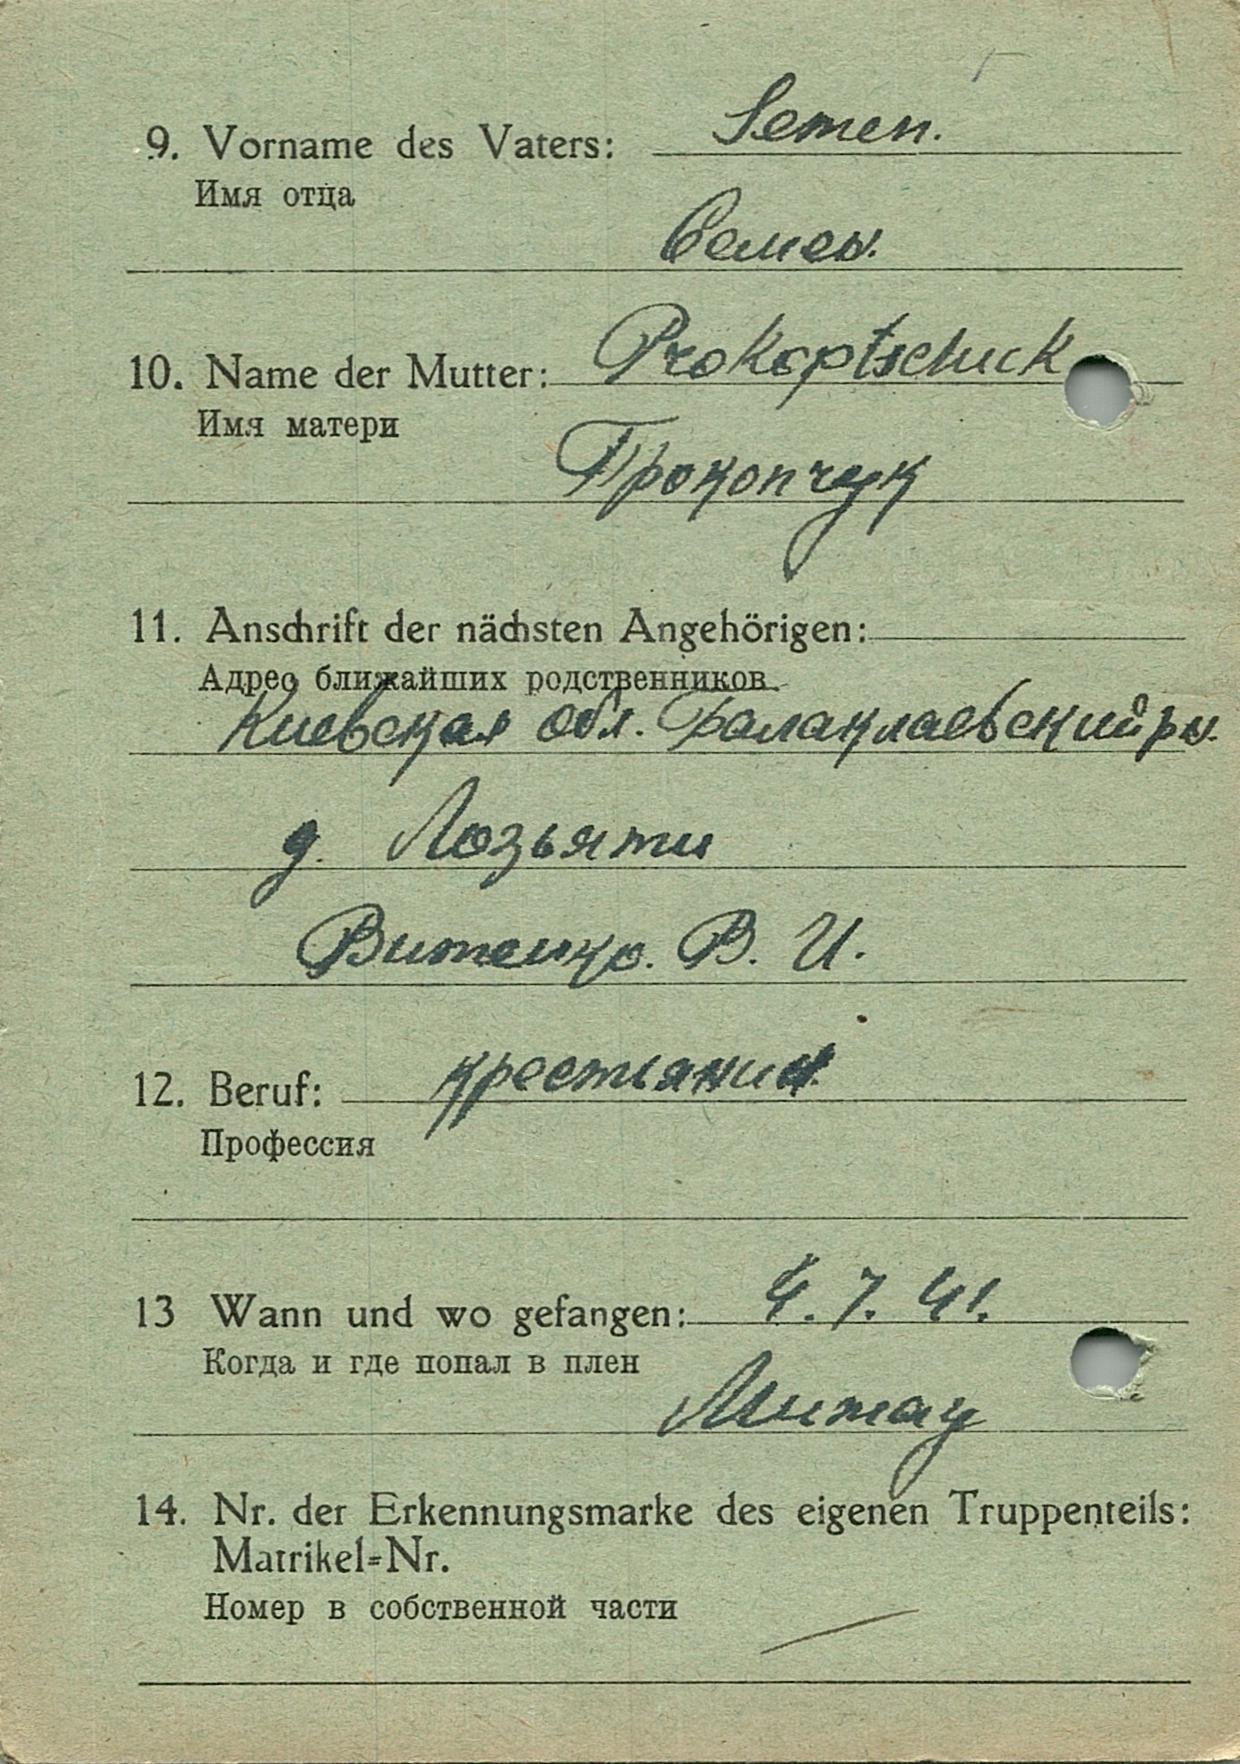 9. Vorname des Vaters: Semen.
Имя отца
Семен.
10. Name der Mutter: Prokoptschuck
Имя матери
Прокопчук
11. Anschrift der nächsten Angehörigen:
Адрес ближайших родственников.
Киевская обл. Балаклаевский рн.
д. Лозьяти
Витенко. В. И.
12. Beruf: крестьянин.
Профессия
13 Wann und wo gefangen: 4. 7. 41.
Когда и где попал в плен
Митау
14. Nr. der Erkennungsmarke des eigenen Truppenteils:
Matrikel=Nr.
Номер в собственной части